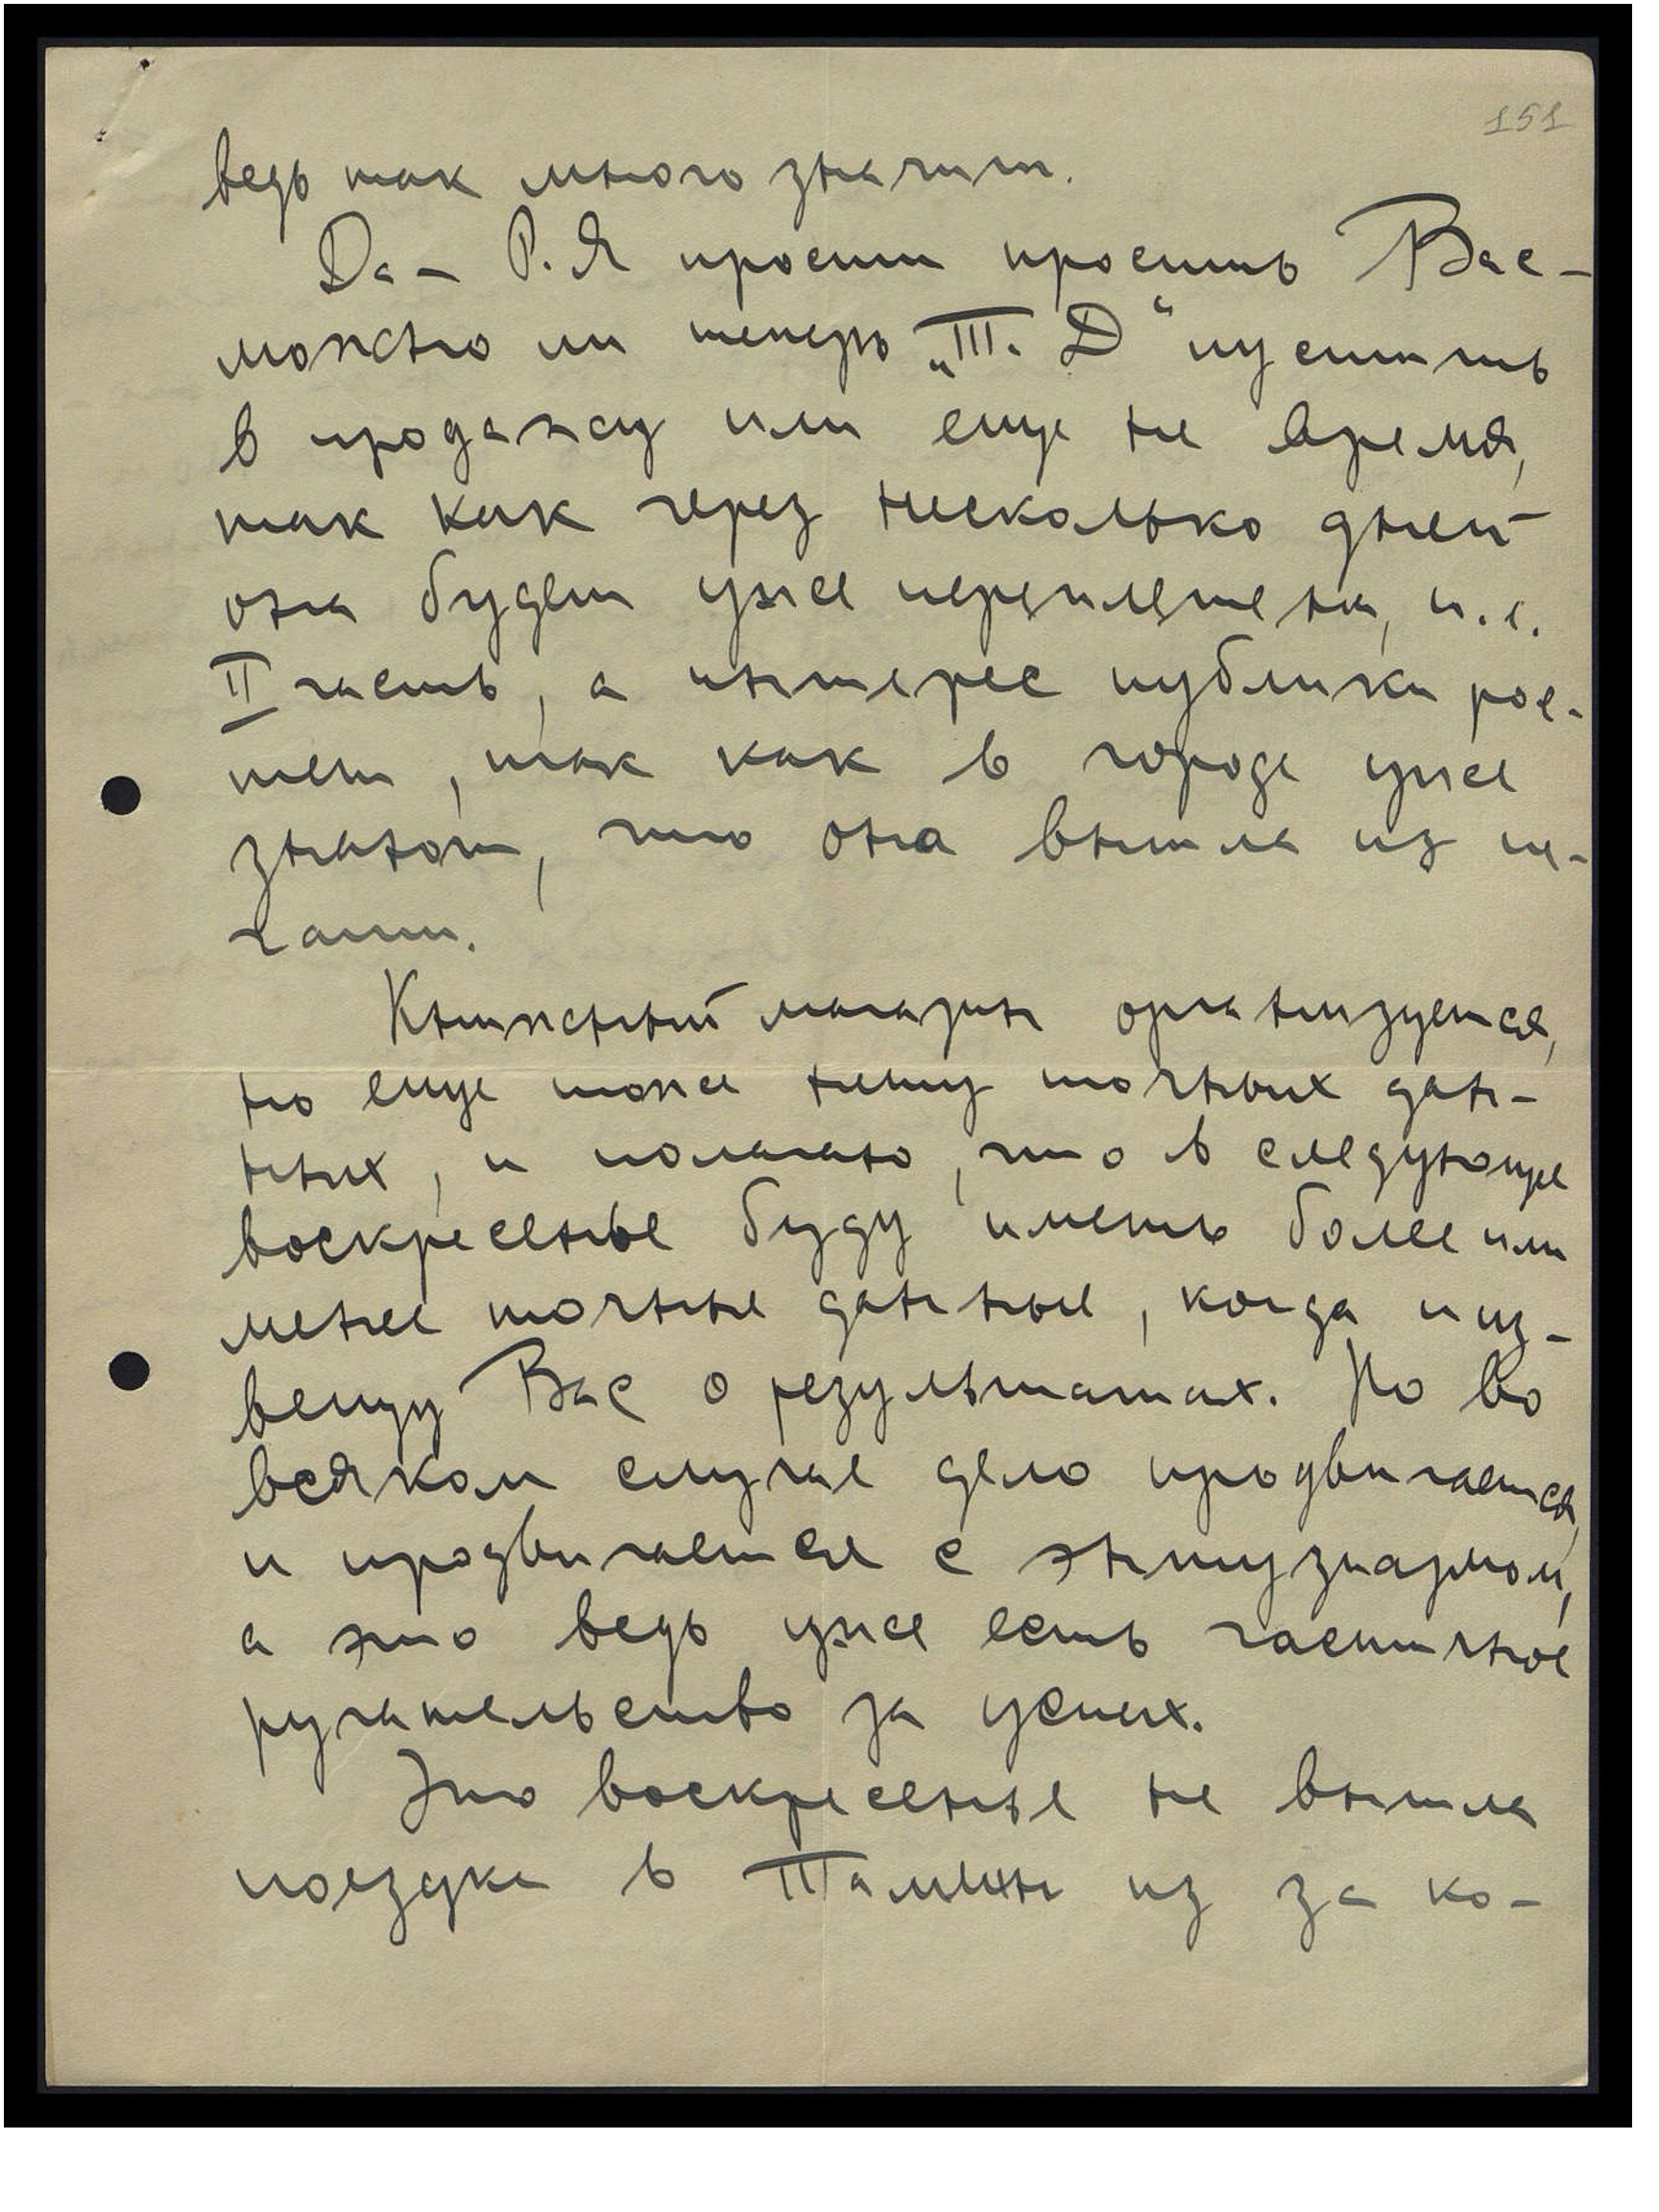 151
ведь так много значит.
Да – Р.Я просит просить Вас –
можно ли теперь „Т. Д“ пустить
в продажу или еще не время,
так как через несколько дней
она будет уже переплетена, т.е.
II часть, а интерес публики рос-
тет, так как в городе уже
знают, что она вышла из пе-
чати.
Книжный магазин организуется,
но еще тоже нету точных дан-
ных, и полагаю, что в следующее
воскресенье буду иметь более или
менее точные данные, когда и из-
вещу Вас о результатах. Но во
всяком случае дело продвигается,
и продвигается с энтузиазмом,
а это ведь уже есть частичное
ручательство за успех.
Это воскресенье не вышла
поездка в Таллинн из за ко-